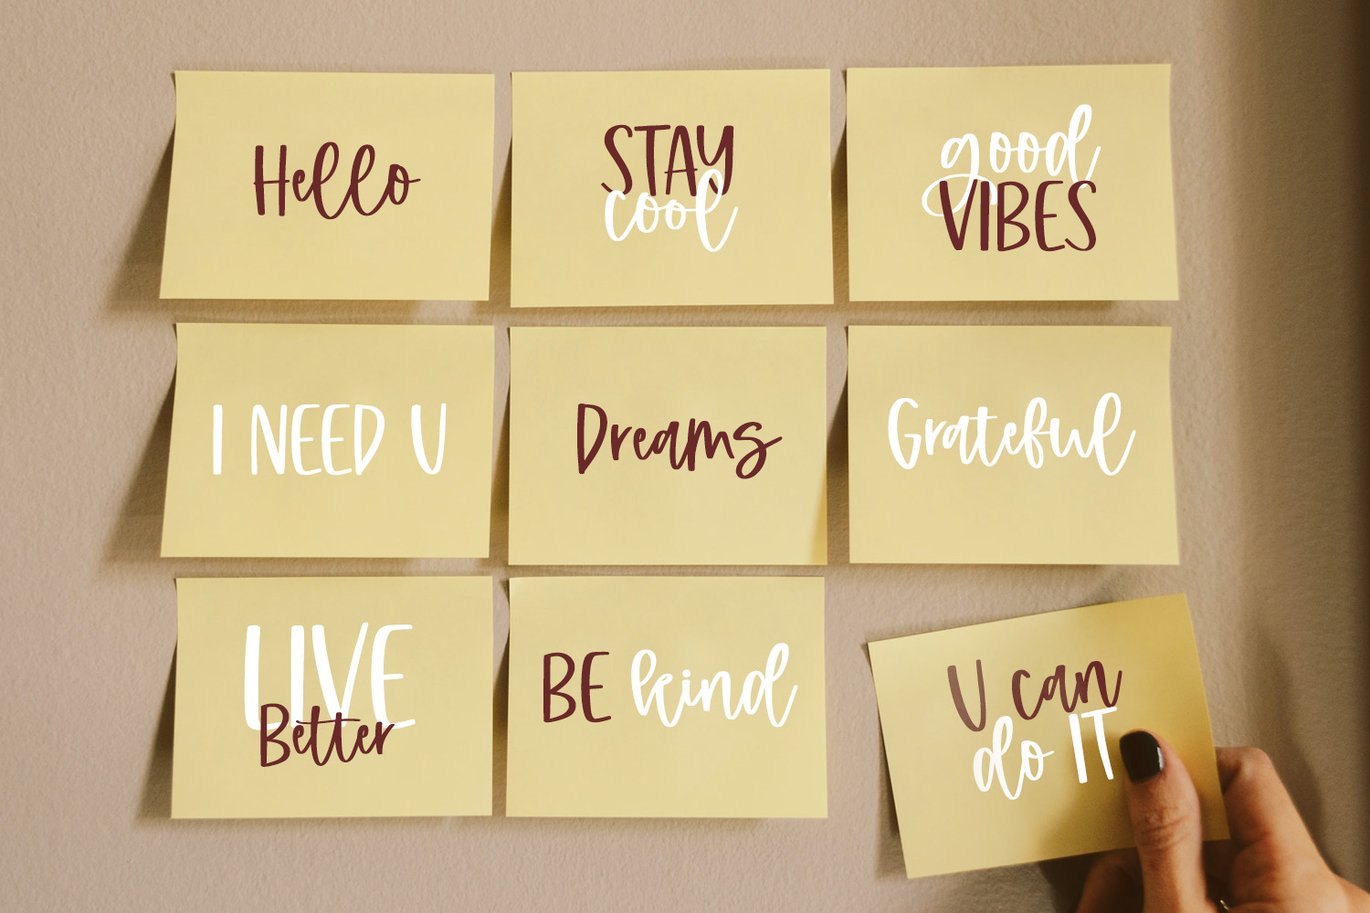 Hello
STAY
cool
good
VIBES
I NEED U
Dreams
Grateful
LIVE
Better
BE kind
U can
do IT